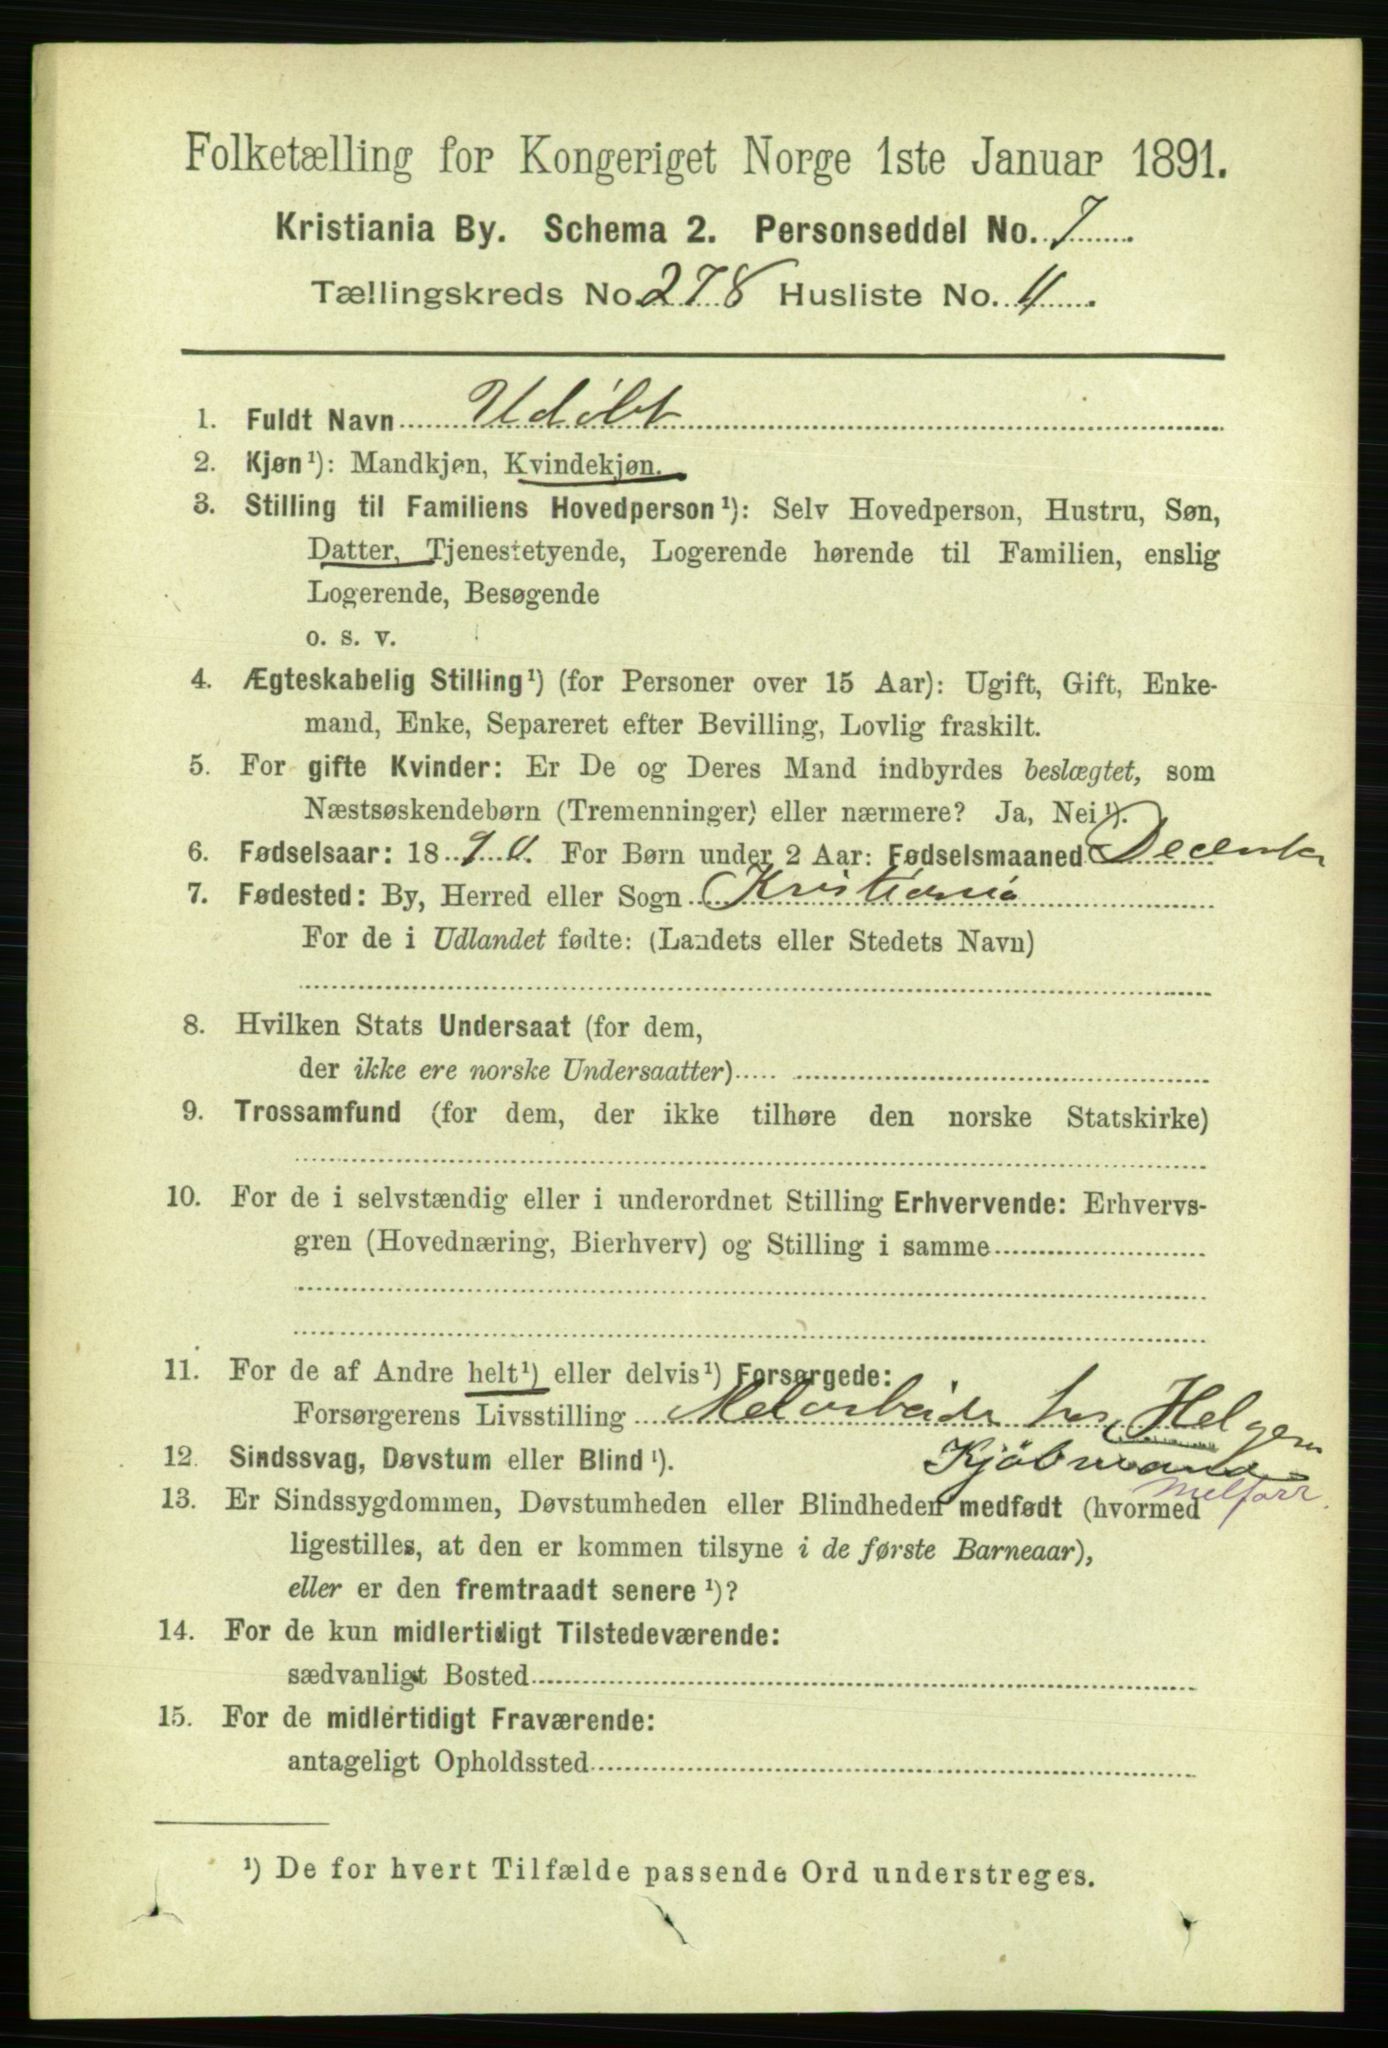 Folketælling for Kongeriget Norge 1ste Januar 1891.
Kristiania By. Schema 2. Personseddel No. 7
Tællingskreds No. 278 Husliste No. 4
1. Fuldt Navn Udøbt
2. Kjøn¹): Mandkjøn, Kvindekjøn.
3. Stilling til Familiens Hovedperson¹): Selv Hovedperson, Hustru, Søn,
Datter, Tjenestetyende, Logerende hørende til Familien, enslig
Logerende, Besøgende
o. s. v.
4. Ægteskabelig Stilling¹) (for Personer over 15 Aar): Ugift, Gift, Enke-
mand, Enke, Separeret efter Bevilling, Lovlig fraskilt.
5. For gifte Kvinder: Er De og Deres Mand indbyrdes beslægtet, som
Næstsøskendebørn (Tremenninger) eller nærmere? Ja, Nei¹).
6. Fødselsaar: 1890. For Børn under 2 Aar: Fødselsmaaned December
7. Fødested: By, Herred eller Sogn Kristiania
For de i Udlandet fødte: (Landets eller Stedets Navn)
8. Hvilken Stats Undersaat (for dem,
der ikke ere norske Undersaatter)
9. Trossamfund (for dem, der ikke tilhøre den norske Statskirke)
10. For de i selvstændig eller i underordnet Stilling Erhvervende: Erhvervs-
gren (Hovednæring, Bierhverv) og Stilling i samme
11. For de af Andre helt¹) eller delvis¹) Forsørgede:
Forsørgerens Livsstilling Melarbeider hos Helgesen
Kjøbmand
12. Sindssvag, Døvstum eller Blind¹).
13. Er Sindssygdommen, Døvstumheden eller Blindheden medfødt (hvormed
ligestilles, at den er kommen tilsyne i de første Barneaar),
eller er den fremtraadt senere¹)?
14. For de kun midlertidigt Tilstedeværende:
sædvanligt Bosted
15. For de midlertidigt Fraværende:
antageligt Opholdssted
¹) De for hvert Tilfælde passende Ord understreges.